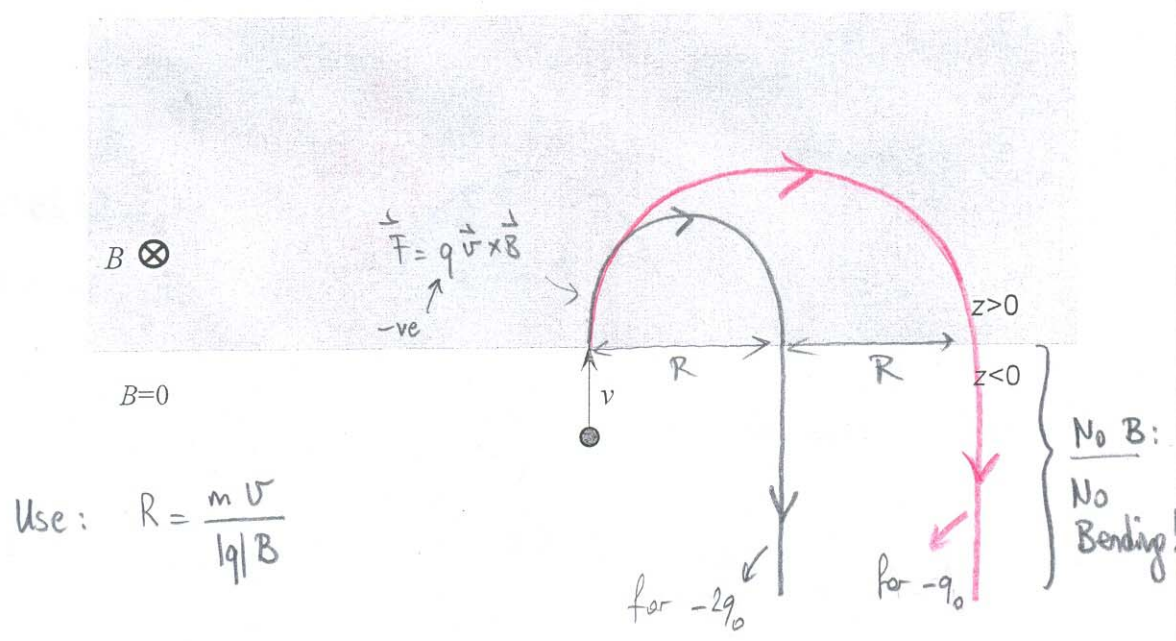 F⃗ = q v⃗ × B⃗
B ⊗
-ve
z>0
R
R
z<0
B=0
v
No B:
No
Bending!
Use: R = mv / |q| B
for -2q₀
for -q₀